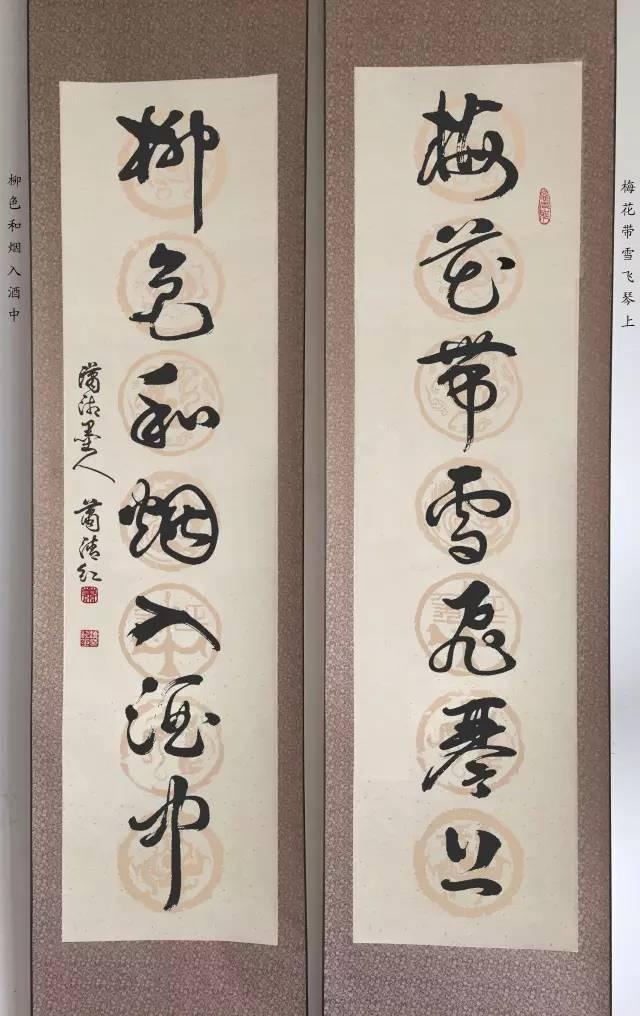 梅花带雪飞琴上
梅花帶雪飛琴上
柳色和烟入酒中
潇湘墨人 萧清红
柳色和烟入酒中